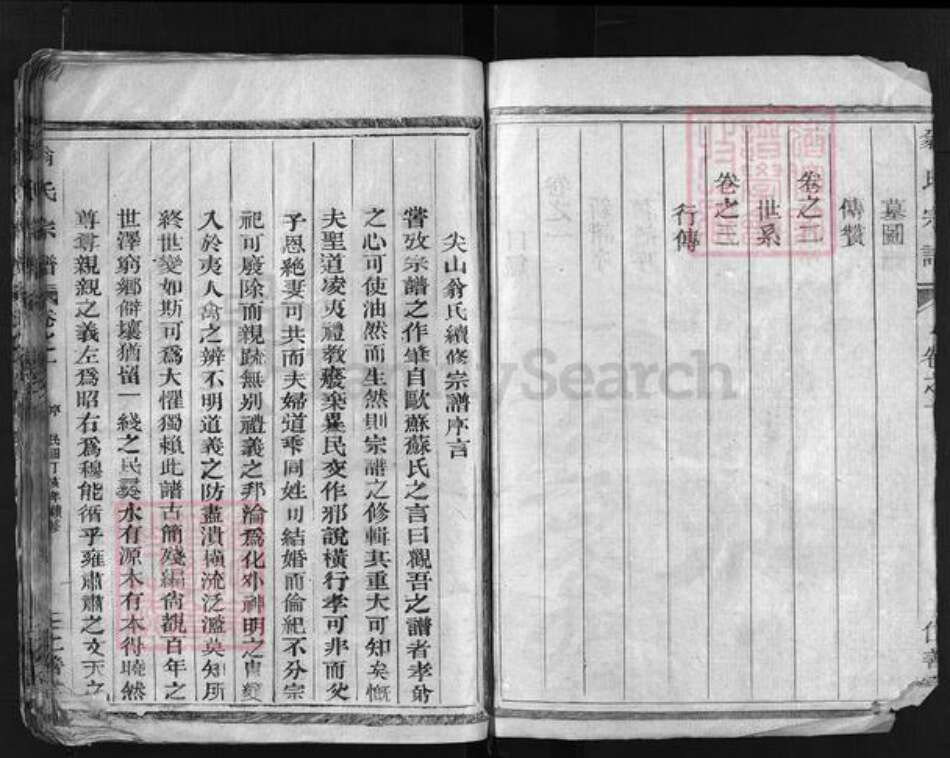 墓圖
傳贊
卷之二
世系
卷之三
行傳
尖山翁氏續修宗譜序言
嘗攷宗譜之作肇自歐蘇蘇氏之言曰觀吾之譜者孝弟
之心可使油然而生然則宗譜之修輯其重大可知矣慨
夫聖道凌夷禮教廢棄異民交作邪說橫行孝可非而父
子恩絕妻可共而夫婦道乖同姓可結婚而倫紀不分宗
祀可廢除而親疏無別禮義之邦淪爲化外神明之胄變
入於夷人禽之辨不明道義之防盡潰橫流泛濫莫知所
終世變如斯可爲大懼獨賴此譜古簡殘編尙覩百年之
世澤窮鄉僻壤猶留一綫之民彝水有源木有本得曉然
尊尊親親之義左爲昭右爲穆能循乎雍肅肅之文天之
翁氏宗譜 卷之一 序 民國丁亥年續修